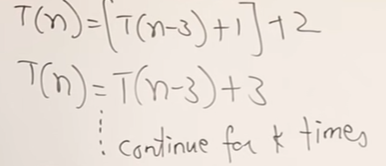 T(n)=[T(n-3)+1]+2
T(n)=T(n-3)+3
continue for k times